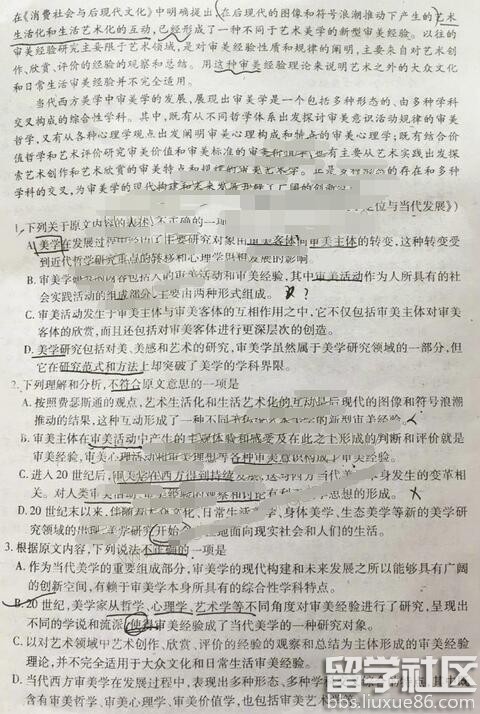 在《消费社会与后现代文化》中明确提出,在后现代的图像和符号浪潮推动下产生的艺术
生活化和生活艺术化的互动,已经形成了一种不同于艺术美学的新型审美经验。以往的
审美经验研究主要限于艺术领域,是对审美经验性质和规律的阐明,主要来自对艺术创
作、欣赏、评价的经验的观察和总结。用这种审美经验理论来说明艺术之外的大众文化
和日常生活审美经验并不完全适用。
当代西方美学中审美学的发展,展现出审美学是一个包括多种形态的、由多种学科
交叉构成的综合性学科。其中,既有从不同哲学体系出发探讨审美意识活动规律的审美
哲学,又有从各种心理学观点出发阐明审美心理构成和特点的审美心理学;既有结合价
值哲学和艺术评价研究审美价值和审美标准的审美价值学,也有主要从艺术实践出发探
索艺术创作和艺术欣赏的审美特点和规律的审美艺术学。正是多种形态的存在和多种
学科的交叉,为审美学的现代构建和未来发展开辟了广阔的创新
定位与当代发展》)
1.下列关于原文内容的表述,不正确的一项
A.美学在发展过程中 主要研究对象由审美客体向审美主体的转变,这种转变受
到近代哲学研究重点的转移和心理学 发展的影响
B.审美学 内容包括人的审美活动和审美经验,其中审美活动作为人所具有的社
会实践活动的组成部分,主要由两种形式组成。 ?
C.审美活动发生于审美主体与审美客体的互相作用之中,它不仅包括审美主体对审美
客体的欣赏,而且还包括对审美客体进行更深层次的创造。
D.美学研究包括对美、美感和艺术的研究,审美学虽然属于美学研究领域的一部分,但
它在研究范式和方法上却突破了美学的学科界限。
2.下列理解和分析,不符合原文意思的一项是
A.按照费瑟斯通的观点,艺术生活化和生活艺术化的互动是后现代的图像和符号浪潮
推动的结果,这种互动形成了一种不同于 的新型审美经验
B.审美主体在审美活动中产生的主观体验和感受及在此之上形成的判断和评价就是
审美经验,审美心理活动和审美理想等各种审美意识构成了审美经验。
C.进入20世纪后,审美学在西方得到持续发展,这与西方当代美学本身发生的变革相
关。对人类审美活动 的观察和讨论有利 思想的形成。
D.20世纪末以来,伴随 大众文化、日常生活 学、身体美学、生态美学等新的美学研
究领域的出现,美学研究开始 地面向现实社会和人们的生活。
3.根据原文内容,下列说法不正确的一项是
A.作为当代美学的重要组成部分,审美学的现代构建和未来发展之所以能够具有广阔
的创新空间,有赖于审美学本身所具有的综合性学科特点。
B.20世纪,美学家从哲学、心理学、艺术学等不同角度对审美经验进行了研究,呈现出
不同的学说和流派,使得审美经验成了当代美学的一种研究对象。
C.以对艺术领域中艺术创作、欣赏、评价的经验的观察和总结为主体形成的审美经验
理论,并不完全适用于大众文化和日常生活审美经验。
D.当代西方审美学在发展过程中,表现出多种形态、多种学科 其中
含有审美哲学、审美心理学、审美价值学,也包括审美艺术学等
留学社区
bbs.liuxue86.com